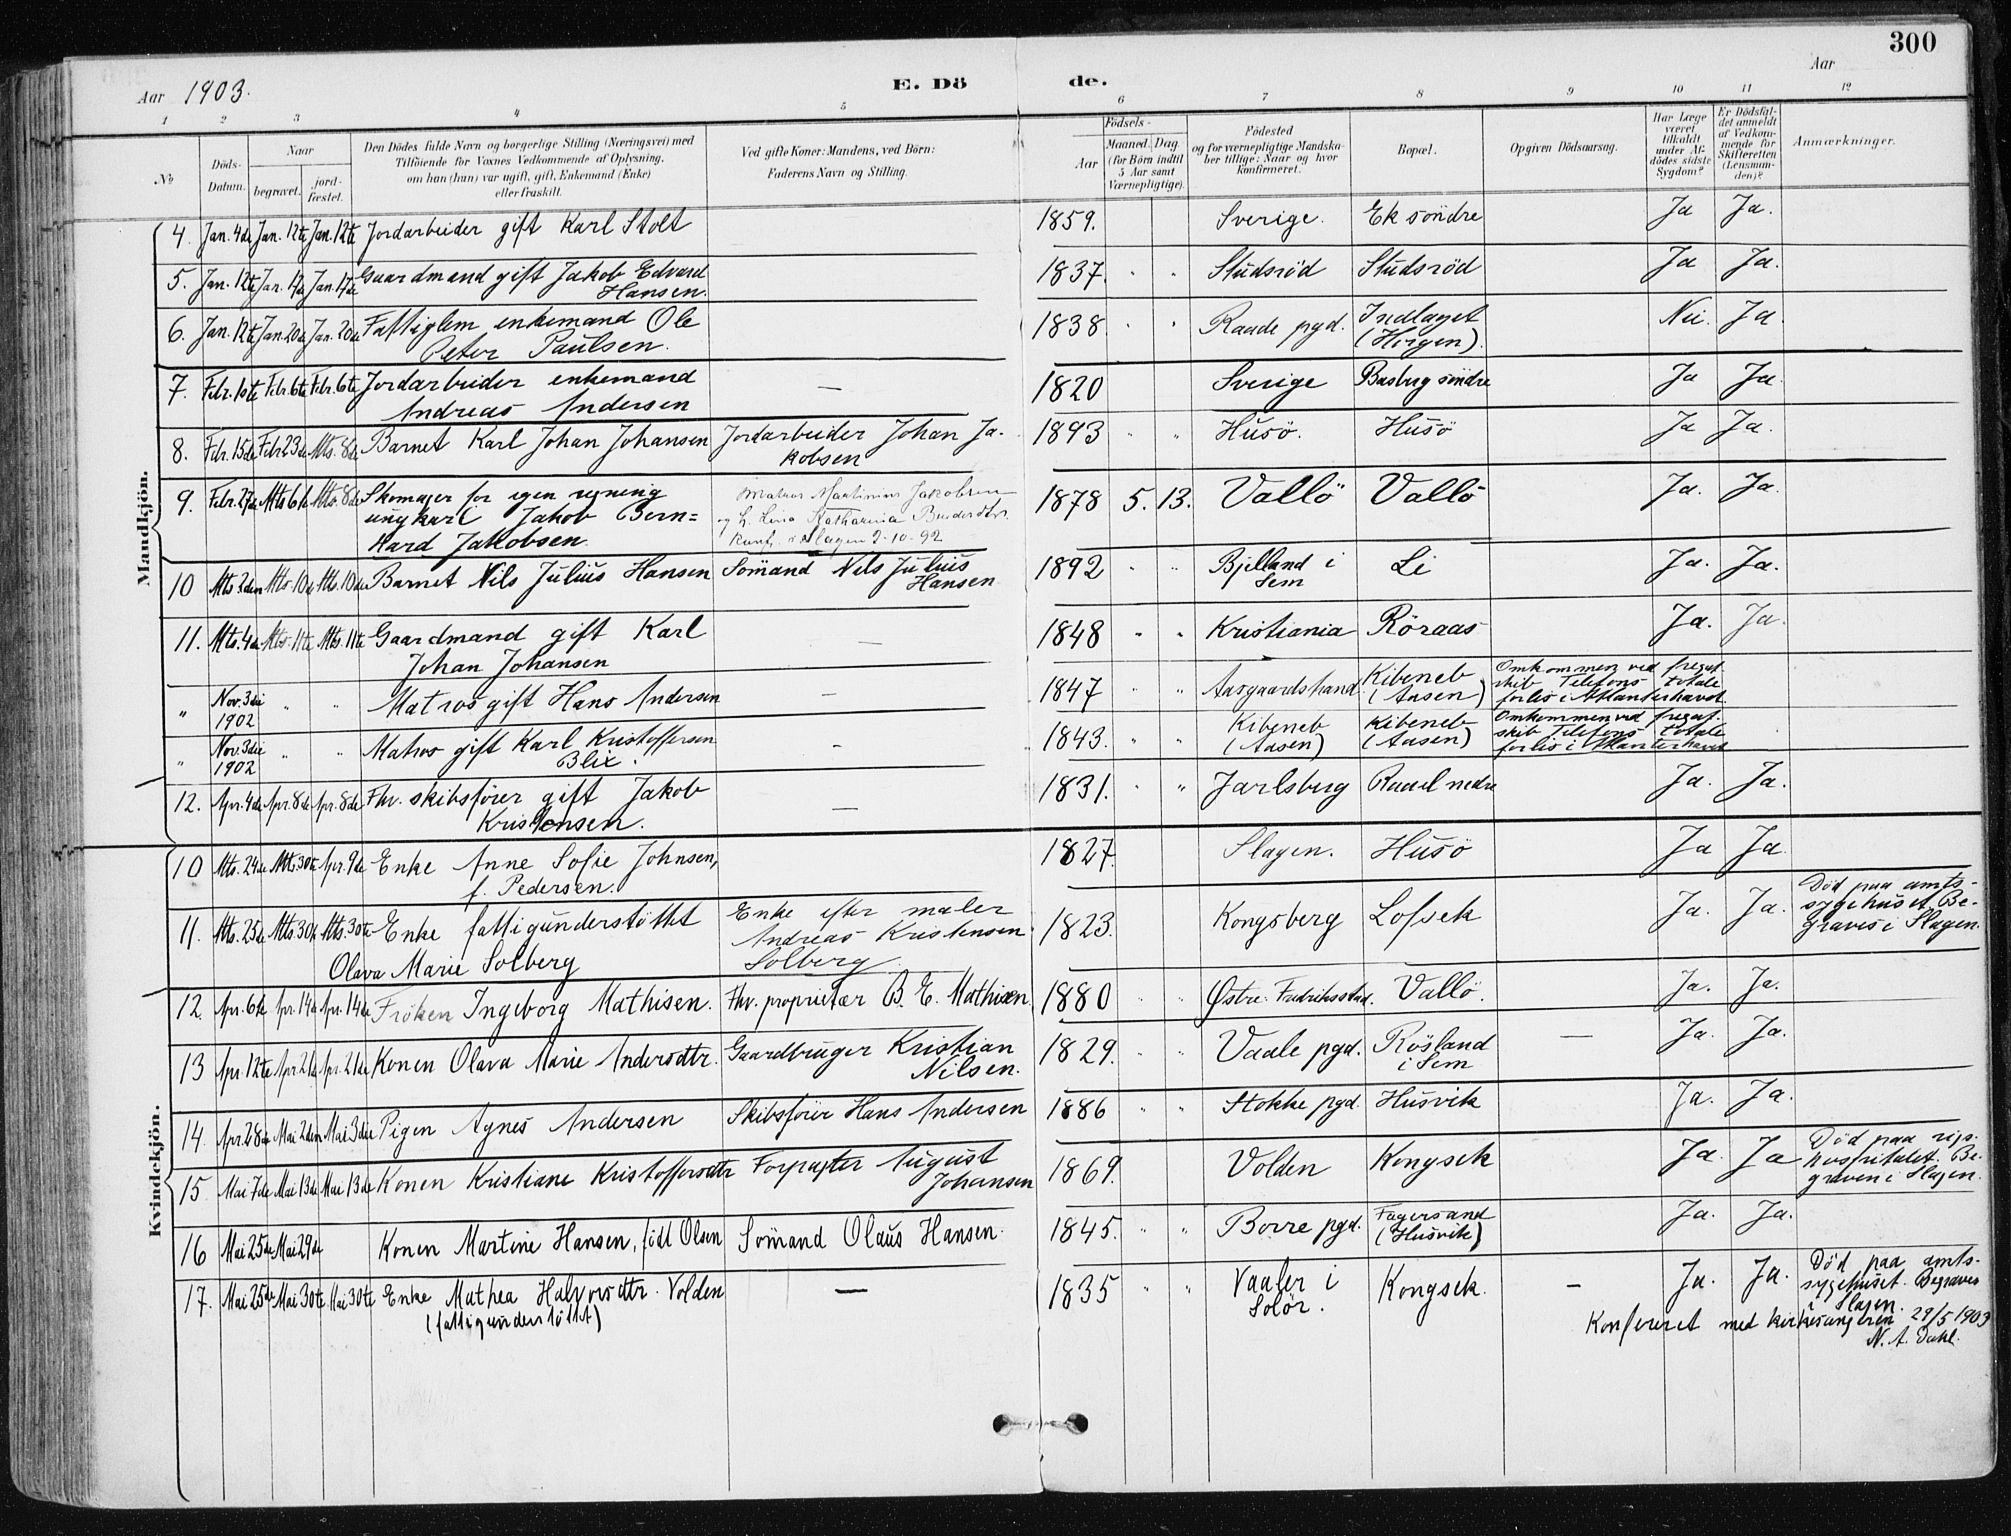 300
Aar 1903.
E. Dö
de.
Aar
1 2 3 4 5 6 7 8 9 10 11 12
№
Döds-
Datum.
Naar
begravet.
jord-
fæstet.
Den Dödes fulde Navn og borgerlige Stilling (Næringsvei) med
Tilföiende for Voxnes Vedkommende af Oplysning,
om han (hun) var ugift, gift, Enkemand (Enke)
eller fraskilt.
Ved gifte Koner: Mandens, ved Börn:
Faderens Navn og Stilling.
Födsels-
Aar
Maaned. Dag
(for Börn indtil
5 Aar samt
Værnepligtige).
Födested
og for værnepligtige Mandska-
ber tillige: Naar og hvor
konfirmeret.
Bopæl.
Opgiven Dödsaarsag.
Har Læge
været
tilkaldt
under Af-
dödes sidste
Sygdom?
Er Dödsfal-
det anmeldt
af Vedkom-
mende for
Skifteretten
(Lensman-
den)?
Anmærkninger.
Mandkjön.
4. Jan. 4de Jan. 12te Jan. 12te Jordarbeider gift Karl Stolt 1859. Sverige. Ek söndre Ja Ja.
5. Jan. 12te Jan. 17de Jan. 17de Gaardmand gift Jakob Edvard 1837. " " Studsröd Studsröd Ja Ja.
Hansen.
6. Jan. 12te Jan. 20de Jan. 20de Fattiglem enkemand Ole 1838 " " Raade pgd. Indlaget Nei. Ja.
Peter Paulsen. (Horgen).
7. Febr. 1ste Febr. 6te Febr. 6te Jordarbeider enkemand — 1820 Sverige Basberg söndre Ja Ja.
Andreas Andersen
8. Febr. 15de Febr. 23de Mts. 8de Barnet Karl Johan Johansen Jordarbeider Johan Ja- 1893 " " Husö. Husö Ja Ja.
kobsen
9. Febr. 27de Mts 6te Mts. 8de Skomager for egen regning matros Martinius Jakobsen 1878 5. 13. Vallö Vallö Ja. Ja.
ungkarl Jakob Bern= og h. Lina Katharina
hard Jakobsen. Konf. i Slagen 2-10-92
10 Mts. 2den Mts. 10de Mts. 10de Barnet Nils Julius Hansen Sömand Nils Julius 1892 " " Bjelland i Li Ja. Ja.
Hansen Sem
11. Mts. 4de Mts. 11te Mts. 11te Gaardmand gift Karl — 1848 " " Kristiania Röraas Ja. Ja.
Johan Johansen
" Nov. 3die " " Matros gift Hans Andersen — 1847 " " Aasgaardstrand Kibeneb Omkommen ved fregat-
1902 (Aasen) skib Telefons totale
forlis i Atlanterhavet.
" Nov. 3die " " Matros gift Karl Kristoffersen — 1843. Kibeneb Kibeneb Omkommen ved fregat-
1902 Blix. (Aasen) (Aasen) skib Telefons totale
forlis i Atlanterhavet
12. Apr. 4de Apr. 8de Apr. 8de Fhv. skibsfører gift Jakob — 1831. " Jarlsberg Raael nedre Ja. Ja.
Kristensen.
Kvindekjön.
10 Mts. 24de Mts. 30te Apr. 9de Enke Anne Sofie Johnsen, 1827. Slagen. Husö Ja Ja.
f. Pedersen.
11. Mts. 25de Mts. 30te Mts. 30te Enke fattigunderstöttet Enke efter maler 1823. Kongsberg Lofsek Ja. Ja. Död paa amts-
Olava Marie Solberg Andreas Kristensen sygehuset. Be-
Solberg. graves i Slagen.
12. Apr. 6te Apr. 14de Apr. 14de Fröken Ingeborg Mathisen. Fhv. proprietær B. E. Mathisen, 1880 " " Østre Fredriksstad. Vallö. Ja. Ja.
13 Apr. 12te Apr. 21de Apr. 21de Konen Olava Marie Andersdtr. Gaardbruger Kristian 1829. " " Vaale pgd. Rösland — Ja. Ja.
Nilsen. i Sem
14. Apr. 28de Mai 2den Mai 3die Pigen Agnes Andersen Skibsförer Hans Andersen 1886 " " Stokke pgd. Husvik Ja. Ja.
15 Mai 7de Mai 13de Mai 13de Konen Kristiane Kristoffersdtr Forpagter August 1869. Volden Kongsek Ja. Ja Död paa rigs-
Johansen hospitalet. Be-
graven i Slagen.
16 Mai 25de Mai 29de Konen Martine Hansen, född Olsen Sömand Olaus Hansen. 1845. " " Borre pgd. Fagersand Ja. Ja.
(Husvik)
17. Mai 25de Mai 30te Mai 30te Enke Mathea Halvorsdtr. Volden — 1835 Vaaler i Kongsek. — Ja. Ja. Död paa amts-
(fattigunderstöttet) Solör. sygehuset. Begraves
i Slagen.
Konfereret med kirkesangeren 29/5 1903
N. A. Dahl.